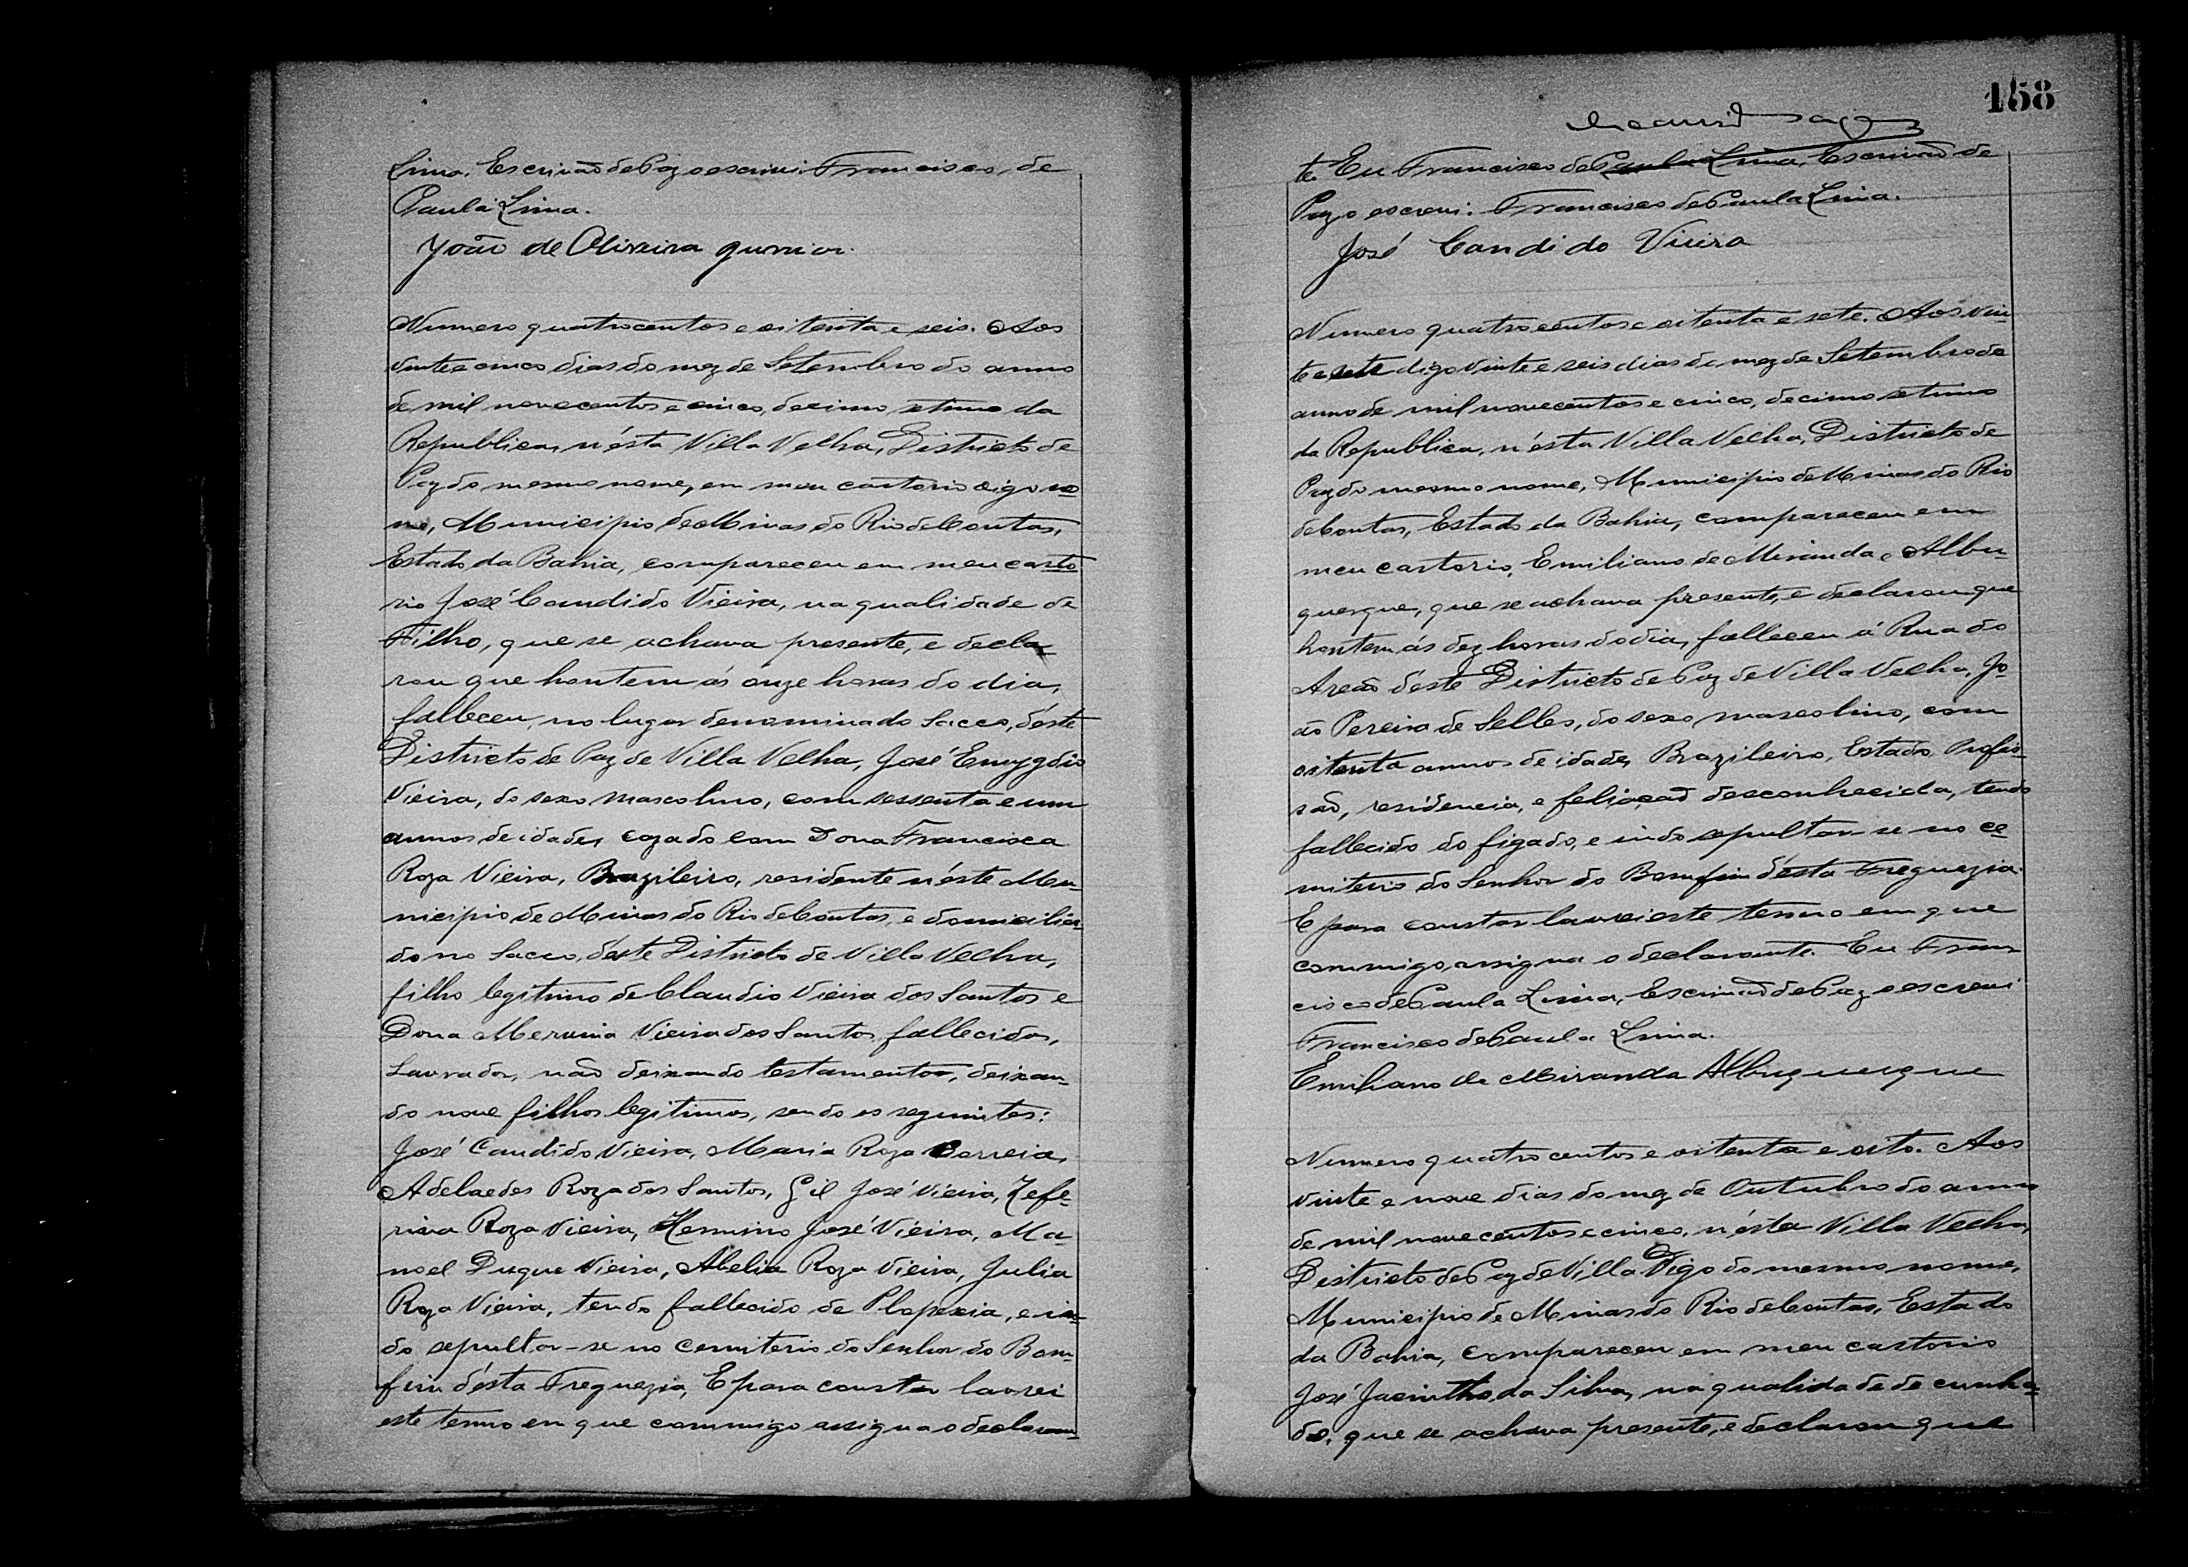 Lima, Escrivão de Paz o escrivi. Francisco, de
Paula Lima.
João de Oliveira Junior.
Numero quatrocentos e oitenta e seis. Aos
vinte e cinco dias do mez de Setembro do anno
de mil novecentos e cinco, decimo setimo da
Republica, n'ésta Villa Velha, Districto de
Paz do mesmo nome, em meu cartorio digo no
me, Municipio de Minas do Rio de Contas,
Estado da Bahia, compareceu em meu carto
rio José Candido Vieira, na qualidade de
Filho, que se achava presente, e decla
rou que hontem ás onze horas do dia,
falleceu, no lugar denominado Sacco, d'éste
Districto de Paz de Villa Velha, José Emygdio
Vieira, do sexo mascolino, com sessenta e um
annos de idade, cazado com Dona Francisca
Roza Vieira, Brazileiro, residente n'éste Mu-
nicipio de Minas do Rio de Contas, e domicilia-
do no Sacco, d'éste Districto de Villa Velha,
filho legitimo de Claudio Vieira dos Santos e
Dona Vieira dos Santos fallecidos,
Lavrador, não deixando testamentos, deixan-
do nove filhos legitimos, sendo os seguintes:
José Candido Vieira, Maria Roza Correia,
Adelaedes Roza dos Santos, Gil José Vieira, Zefe-
rina Roza Vieira, Hermino José Vieira, Ma-
noel Duque Vieira, Abelia Roza Vieira, Julia
Roza Vieira, tendo fallecido de Plopexia, e in-
do sepultar-se no Cemiterio do Senhor do Bom-
fim d'ésta Freguezia, E para constar lavrei
este termo en que commigo assigna o declaran-
158
te. Eu Francisco de Paula Lima, Escrivão de
Paz o escrevi. Francisco de Paula Lima.
José Candido Vieira
Numero quatrocentos e oitenta e sete. Aos vin-
te e sete digo vinte e seis dias do mez de Setembro de
anno de mil novecentos e cinco, decimo setimo
da Republica, n'ésta Villa Velha, Districto de
Paz do mesmo nome, Municipio de Minas do Rio
de Contas, Estado da Bahia, compareceu em
meu cartorio, Emiliano de Miranda e Albu-
querque, que se achava presente, e declarou que
hontem ás dez horas do dia, falleceu á Rua do
Areão d'éste Districto de Paz de Villa Velha, Jo
ão Pereira de Selles, do sexo mascolino, com
oitenta annos de idade, Brazileiro, Estado, Profis-
são, residencia, e feliação desconhecida, tendo
fallecido do figado, e indo sepultar-se no ce
miterio do Senhor do Bomfim d'ésta Freguezia.
E para constar lavrei este termo em que
commigo assigna o declarante. Eu Fran
cisco de Paula Lima, Escrivão de Paz o escrevi
Francisco de Paula Lima.
Emiliano de Miranda Albuquerque
Numero quatrocentos e oitenta e oito. Aos
vinte e nove dias do mez de Outubro do anno
de mil novecentos e cinco, n'ésta Villa Velha,
Districto de Paz de Villa Digo do mesmo nome,
Municipio de Minas do Rio de Contas, Estado
da Bahia, compareceu em meu cartorio
José Jacintho da Silva, na qualidade de cunha-
do, que se achava presente, e declarou que